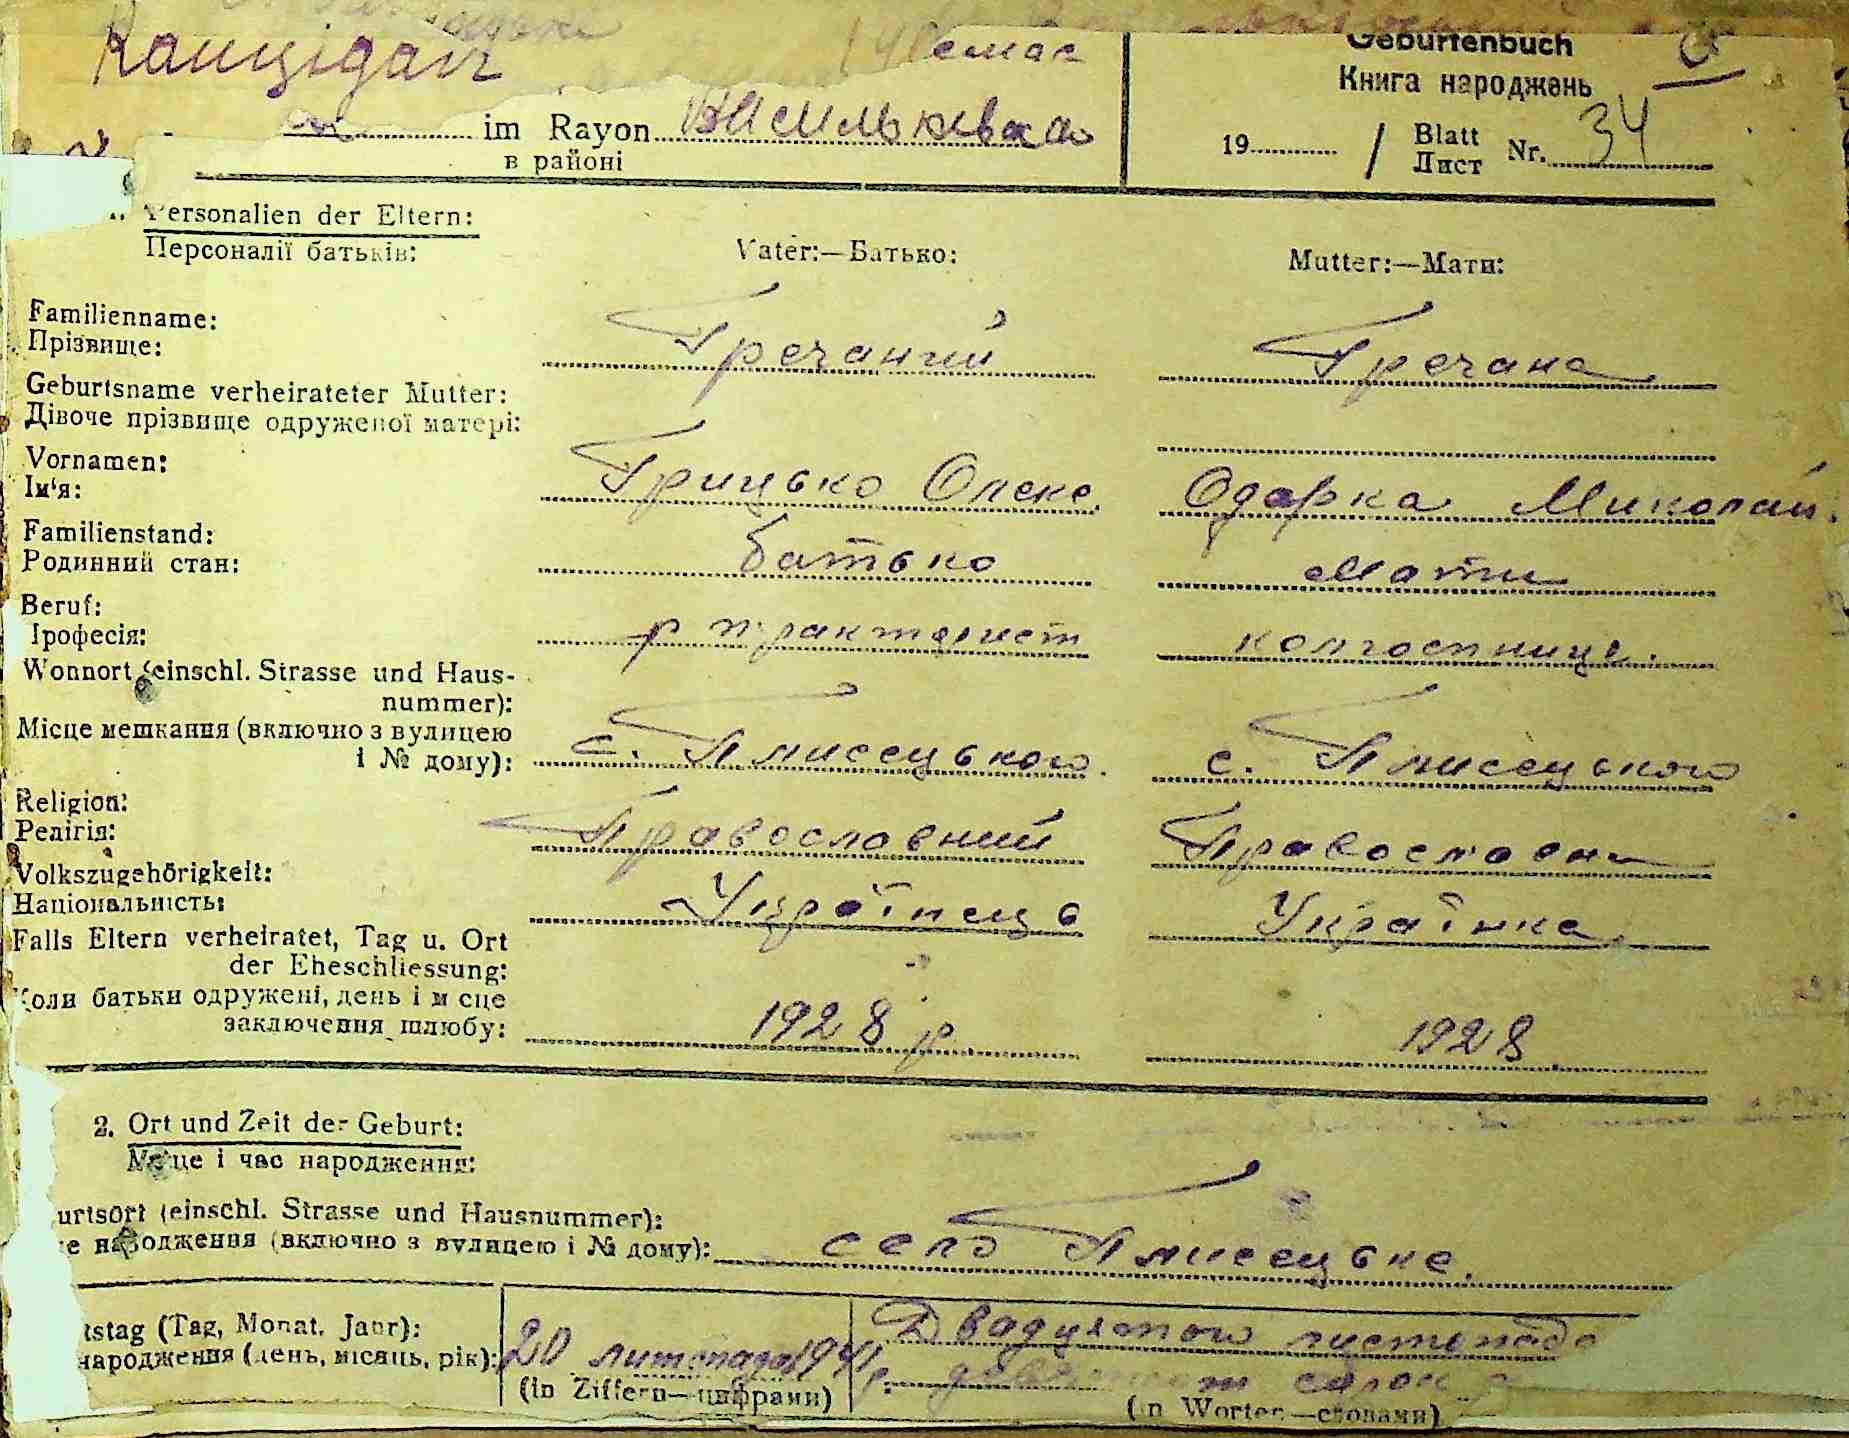 Канцідал
Geburtenbuch
Книга народжень
im Rayon Васильківка
в районі
19 / Blatt Лист Nr. 34
Personalien der Eltern:
Персоналії батьків:
Vater:—Батько: Mutter:—Мати:
Familienname:
Прізвище: Гречаний Гречана
Geburtsname verheirateter Mutter:
Дівоче прізвище одруженої матері:
Vornamen:
Ім'я: Грицько Олекс. Одарка Миколай.
Familienstand:
Родинний стан: батько мати
Beruf:
Професія: колгоспниця.
Wohnort (einschl. Strasse und Haus-
nummer):
Місце мешкання (включно з вулицею
і № дому): с. Плисецького. с. Плисецького
Religion:
Релігія: Православний Православна
Volkszugehörigkeit:
Національність: Українець Українка.
Falls Eltern verheiratet, Tag u. Ort
der Eheschliessung:
Коли батьки одружені, день і місце
заключення шлюбу: 1928 р. 1928
2. Ort und Zeit der Geburt:
Місце і час народження:
urtsort (einschl. Strasse und Hausnummer):
е народження (включно з вулицею і № дому): село Плисецьке.
tstag (Tag, Monat, Jahr):
народження (день, місяць, рік): 20 листопада 1941 р. Двадцятого листопада
сорок
(in Ziffern—цифрами) (in Worten—словами)